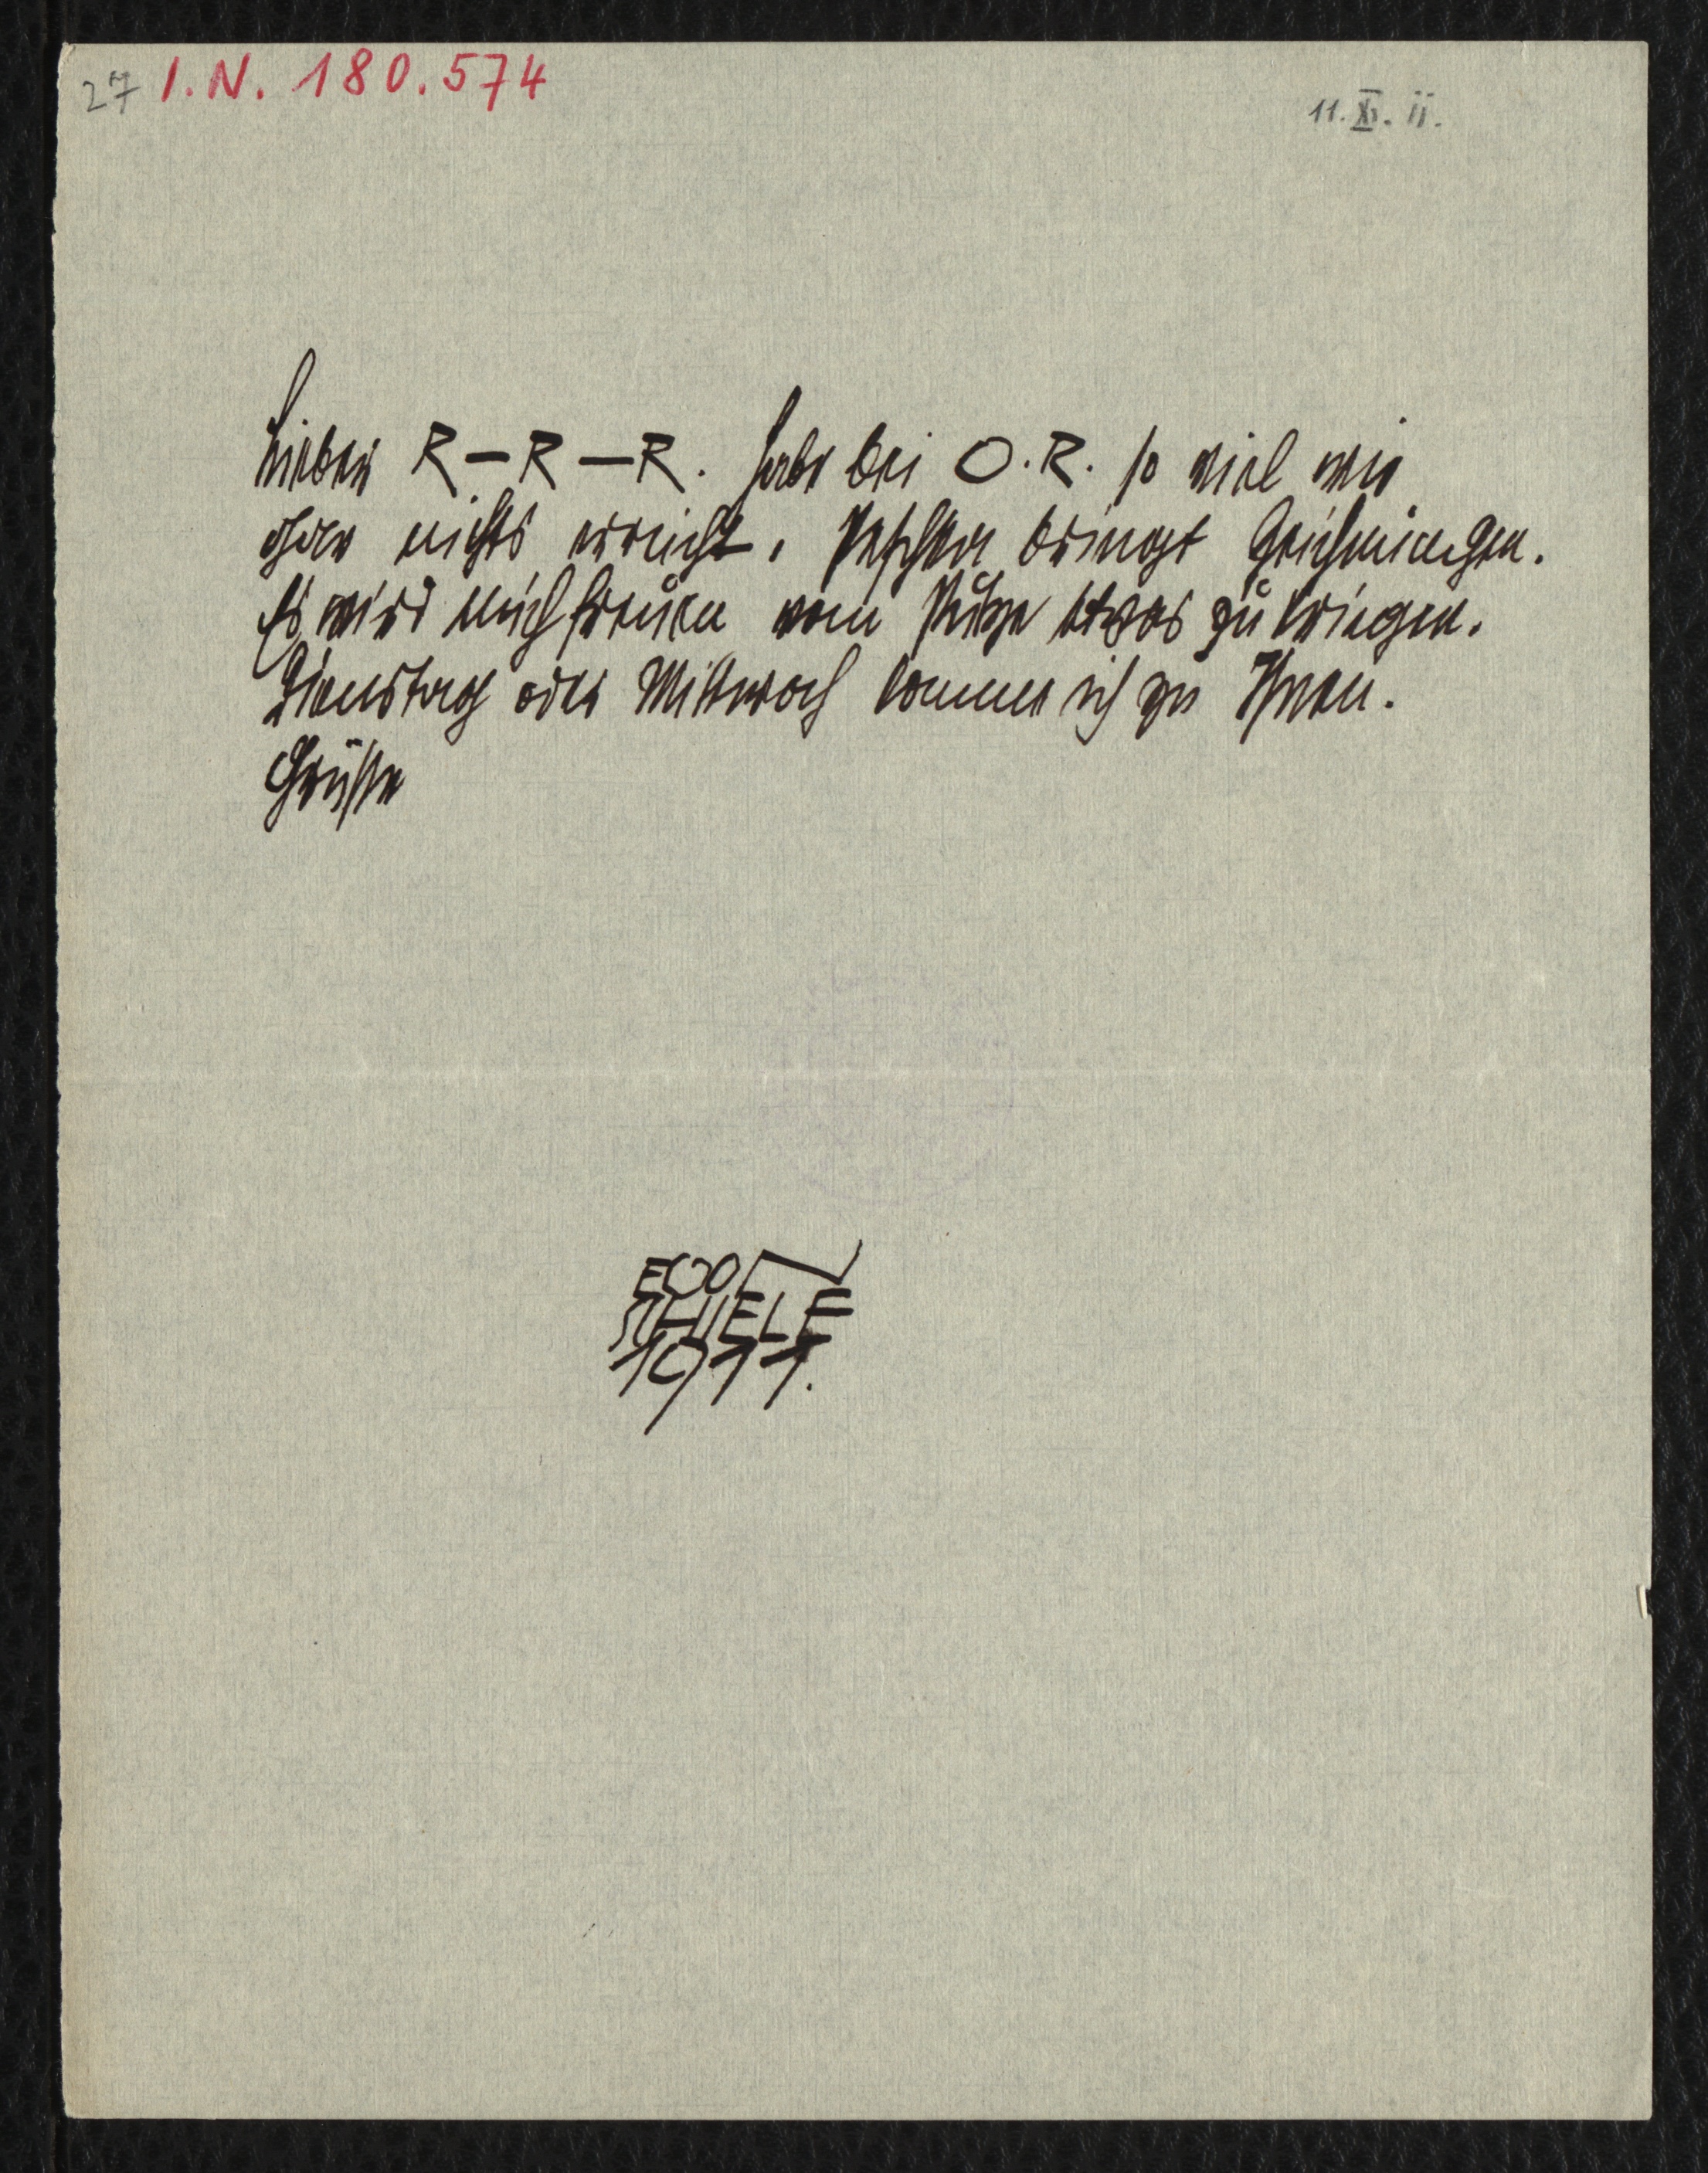 27 I.N. 180.574
11. XI. 11.
Lieber R–R–R. habe bei O.R. so viel wie
oder nichts erreicht. Peschka bringt
Es wird mich freuen vom etwas zu kriegen.
Dienstag oder Mittwoch komme ich zu Ihnen.
Grüsse
EGON
SCHIELE
1911.